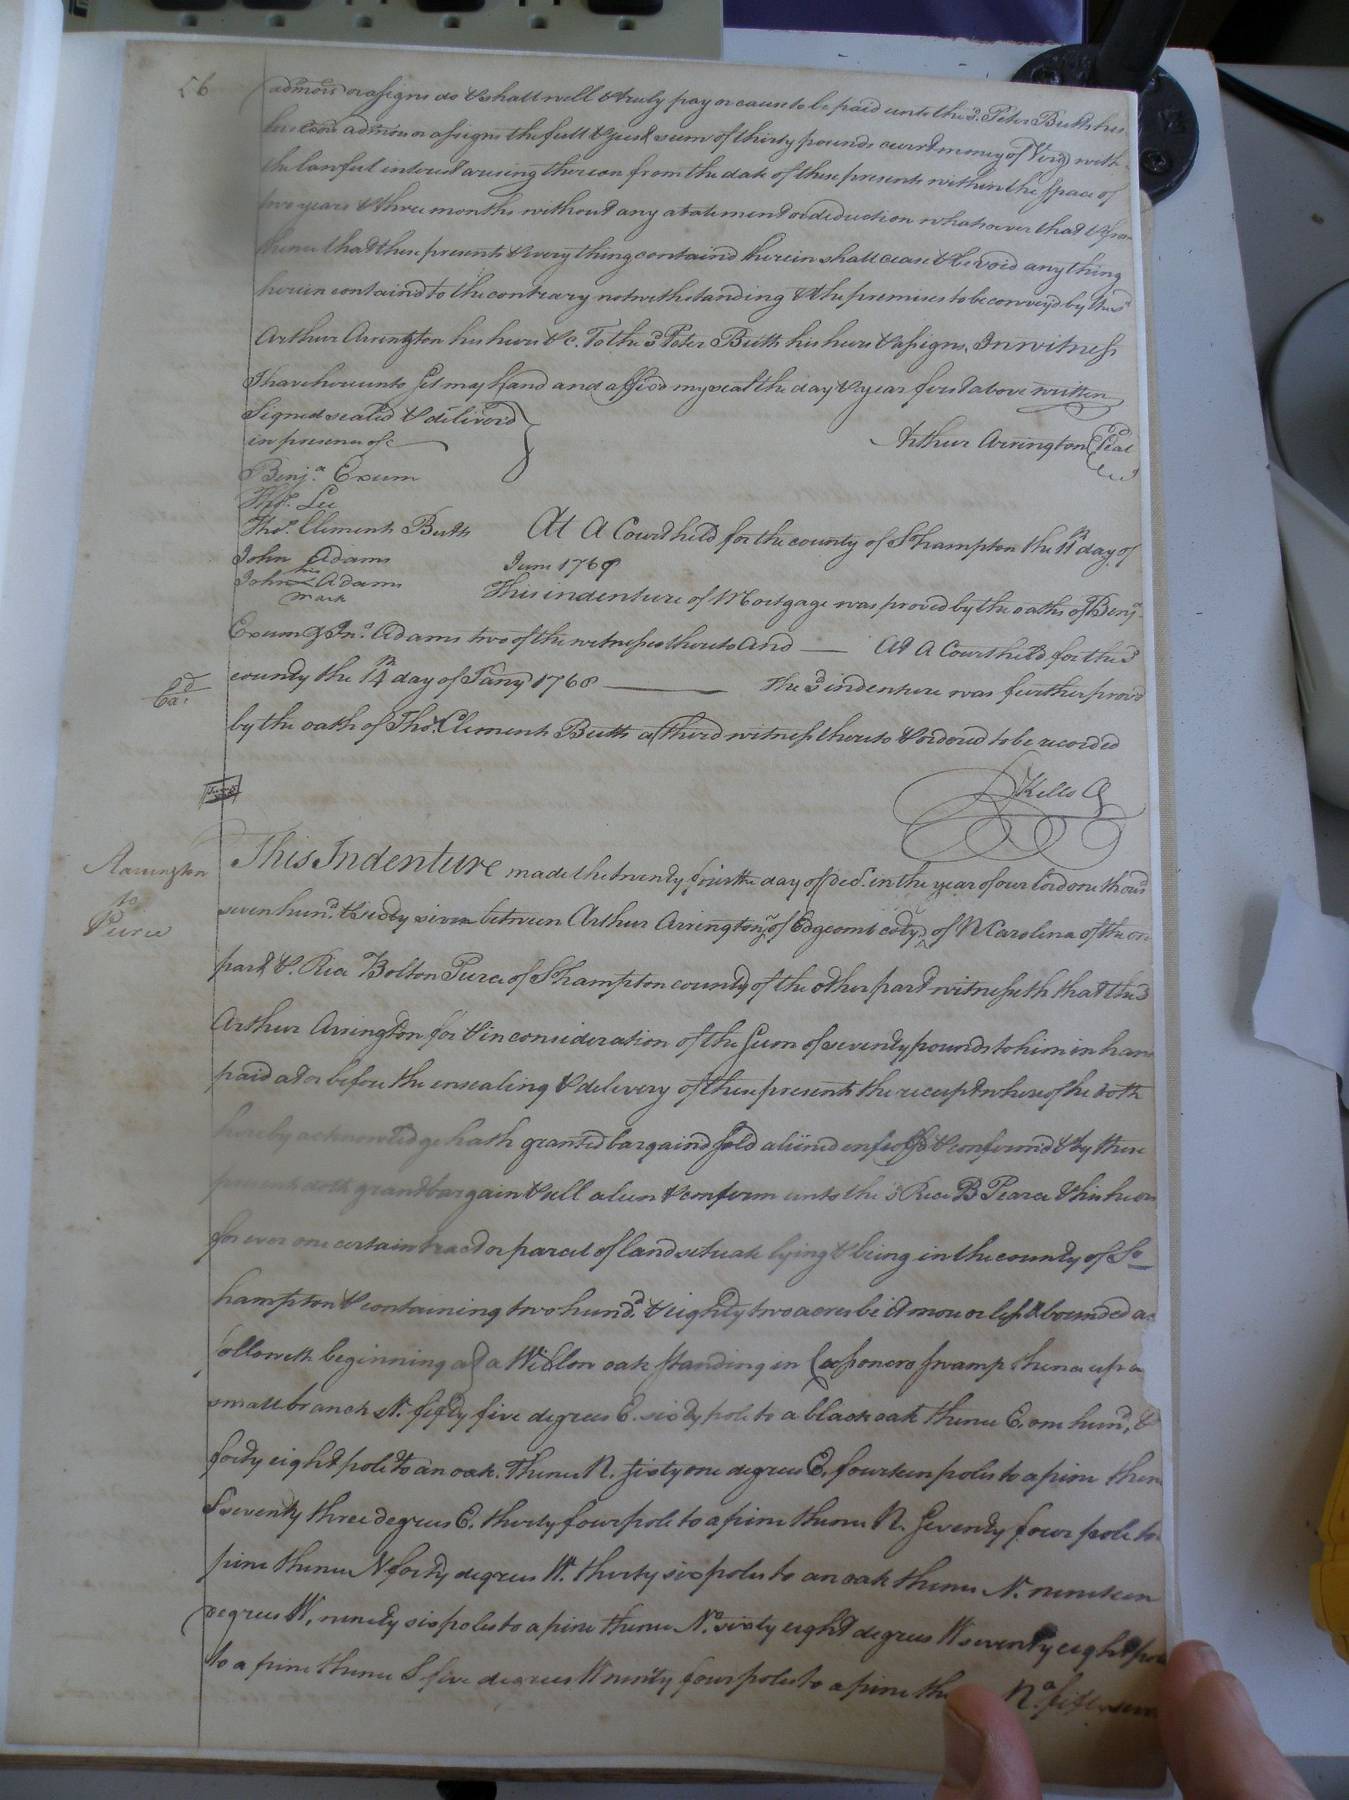 56
admors or assigns do & shall well & truly pay or cause to be paid unto the sd. Peter Butts his
admors or assigns the full & just sum of thirty pounds currt money of Virga with
the lawful interest arising thereon from the date of these presents within the space of
years & three months without any abatement or deduction whatsoever that & from
thence that these presents & every thing containd herein shall cease & be void any thing
herein containd to the contrary notwithstanding & the premises to be conveyd by the sd
Arthur Arrington his heirs &c. To the sd Peter Butts his heirs & assigns. In witness
I have hereunto set my hand and affixd my seal the day & year first above written
Signed sealed & deliverd
in presence of
Arthur Arrington Seal
Benja. Exum
Thos. Lee
Thos. Clements Butts
John Adams
his
John Adams
mark
At a Court held for the county of So.hampton the 11th day of
June 1767
This indenture of Mortgage was proved by the oaths of Benja.
Exum & Jno. Adams two of the witnesses thereto and — At a Court held for the sd
county the 14th day of Jany 1768 — The sd indenture was further provd
by the oath of Thos. Clements Butts a third witness thereto & ordered to be recorded
Exd.
Kello
Arrington
to
Peirce
This Indenture made the twenty day of Decr. in the year of our lord one thousd
seven hund. & sixty seven between Arthur Arrington of Edgcomb coty. of N Carolina of the one
part & Rice Bolton Peirce of So.hampton county of the other part witnesseth that the sd
Arthur Arrington for & in consideration of the sum of seventy pounds to him in hand
paid at or before the ensealing & delivery of these presents the receipt whereof he doth
hereby acknowledge hath granted bargaind sold aliend enfeoffd & confirmd & by these
presents doth grant bargain & sell alien & confirm unto the sd Rice B Pearce & his heirs
for ever one certain tract or parcel of land situate lying & being in the county of So
hampton & containing two hund. & eighty two acres be it more or less & bounded as
followeth beginning at a Willow oak standing in swamp thence up a
small branch N. fifty five degrees E. sixty pole to a black oak thence E. one hund. &
forty eight pole to an oak. Thence N. sixty one degrees E. fourteen poles to a pine thence
S seventy three degrees E. thirty four pole to a pine thence N. seventy four pole to
pine thence N forty degrees W. thirty six poles to an oak thence N. nineteen
degrees W. ninety six poles to a pine thence No. sixty eight degrees W seventy eight poles
to a pine thence S five degrees W ninty four poles to a pine No. fifty seven